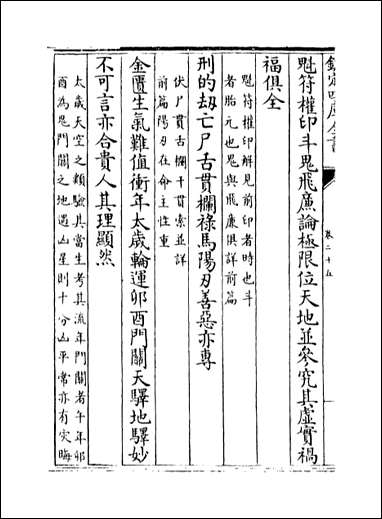 欽定四庫全書
卷二十五
魁符權印斗鬼飛廉論極限位天地並參究其虛實禍
福俱全
魁符權印解見前印者時也斗
者胎元也鬼與飛廉俱詳前篇
刑的劫亡尸舌貫欄祿馬陽刃善惡亦專
伏尸貫古欄干貫索並詳
前篇陽刃在命主性重
金匱生氣難值衝年太歲輪運卯酉門關天驛地驛妙
不可言亦合貴人其理顯然
太歲天空之類驗其當生考其流年門關者午年卯
酉為鬼門關之地遇凶星則十分凶平常亦有灾晦